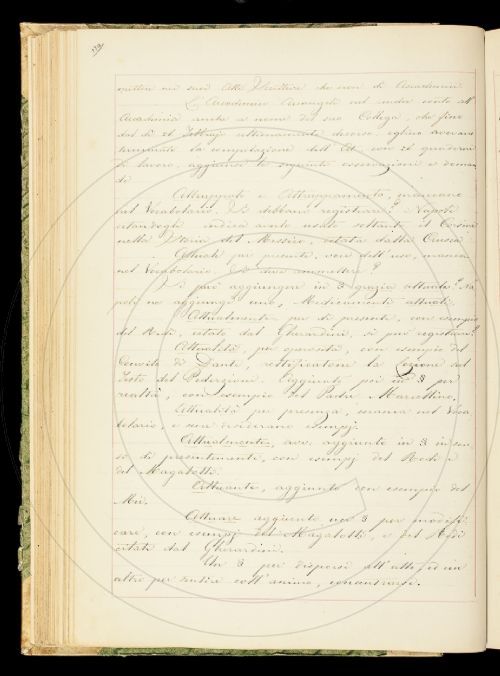 mettere nei suoi Atti Scritture che non di Accademici
L'Accademico Arcangeli nel render conto all'
Accademia anche a nome del suo Collega, che fino
dal dì 26 Febbrajo ultimamente decorso, eglino avevano
terminata la compilazione dell' At. con 26 quaderni
di lavoro, aggiunse le seguenti osservazioni e doman-
de
Attruppato e Attruppamento, mancano
nel Vocabolario. Si debbono registrare? Napoli
citandogli indica averlo usato soltanto il Corsini
nella Storia del Messico, citata dalla Crusca
Attuale per presente, con dell' uso, manca
nel Vocabolario. Si deve ammettere?
Si può aggiungere in § grazia attuale? Na-
poli ne aggiunge uno, Medicamenti attuali.
Attualmente per di presente, con esempio
del Redi, citato dal Gherardini, si può registrare?
Attualità, per , con esempio del
Convito di Dante, rettificatone la lezione sul
testo del Pederzini. Aggiunto poi in § per
realtà, con esempio del Padre Marcellino.
Attualità per presenza, manca nel Voca-
bolario, e non desiderano esempj.
Attualmente, avv. aggiunto in § in sen-
so di presentemente, con esempj del Redi e
del Magalotti.
Attuante, aggiunto con esempio del
Mil.
Attuare aggiunto un § per modifi-
care, con esempj del Magalotti, e del Redi
citati dal Gherardini.
Un § per disporsi all' atto, ed un
altro per coll' animo, concentrarsi.